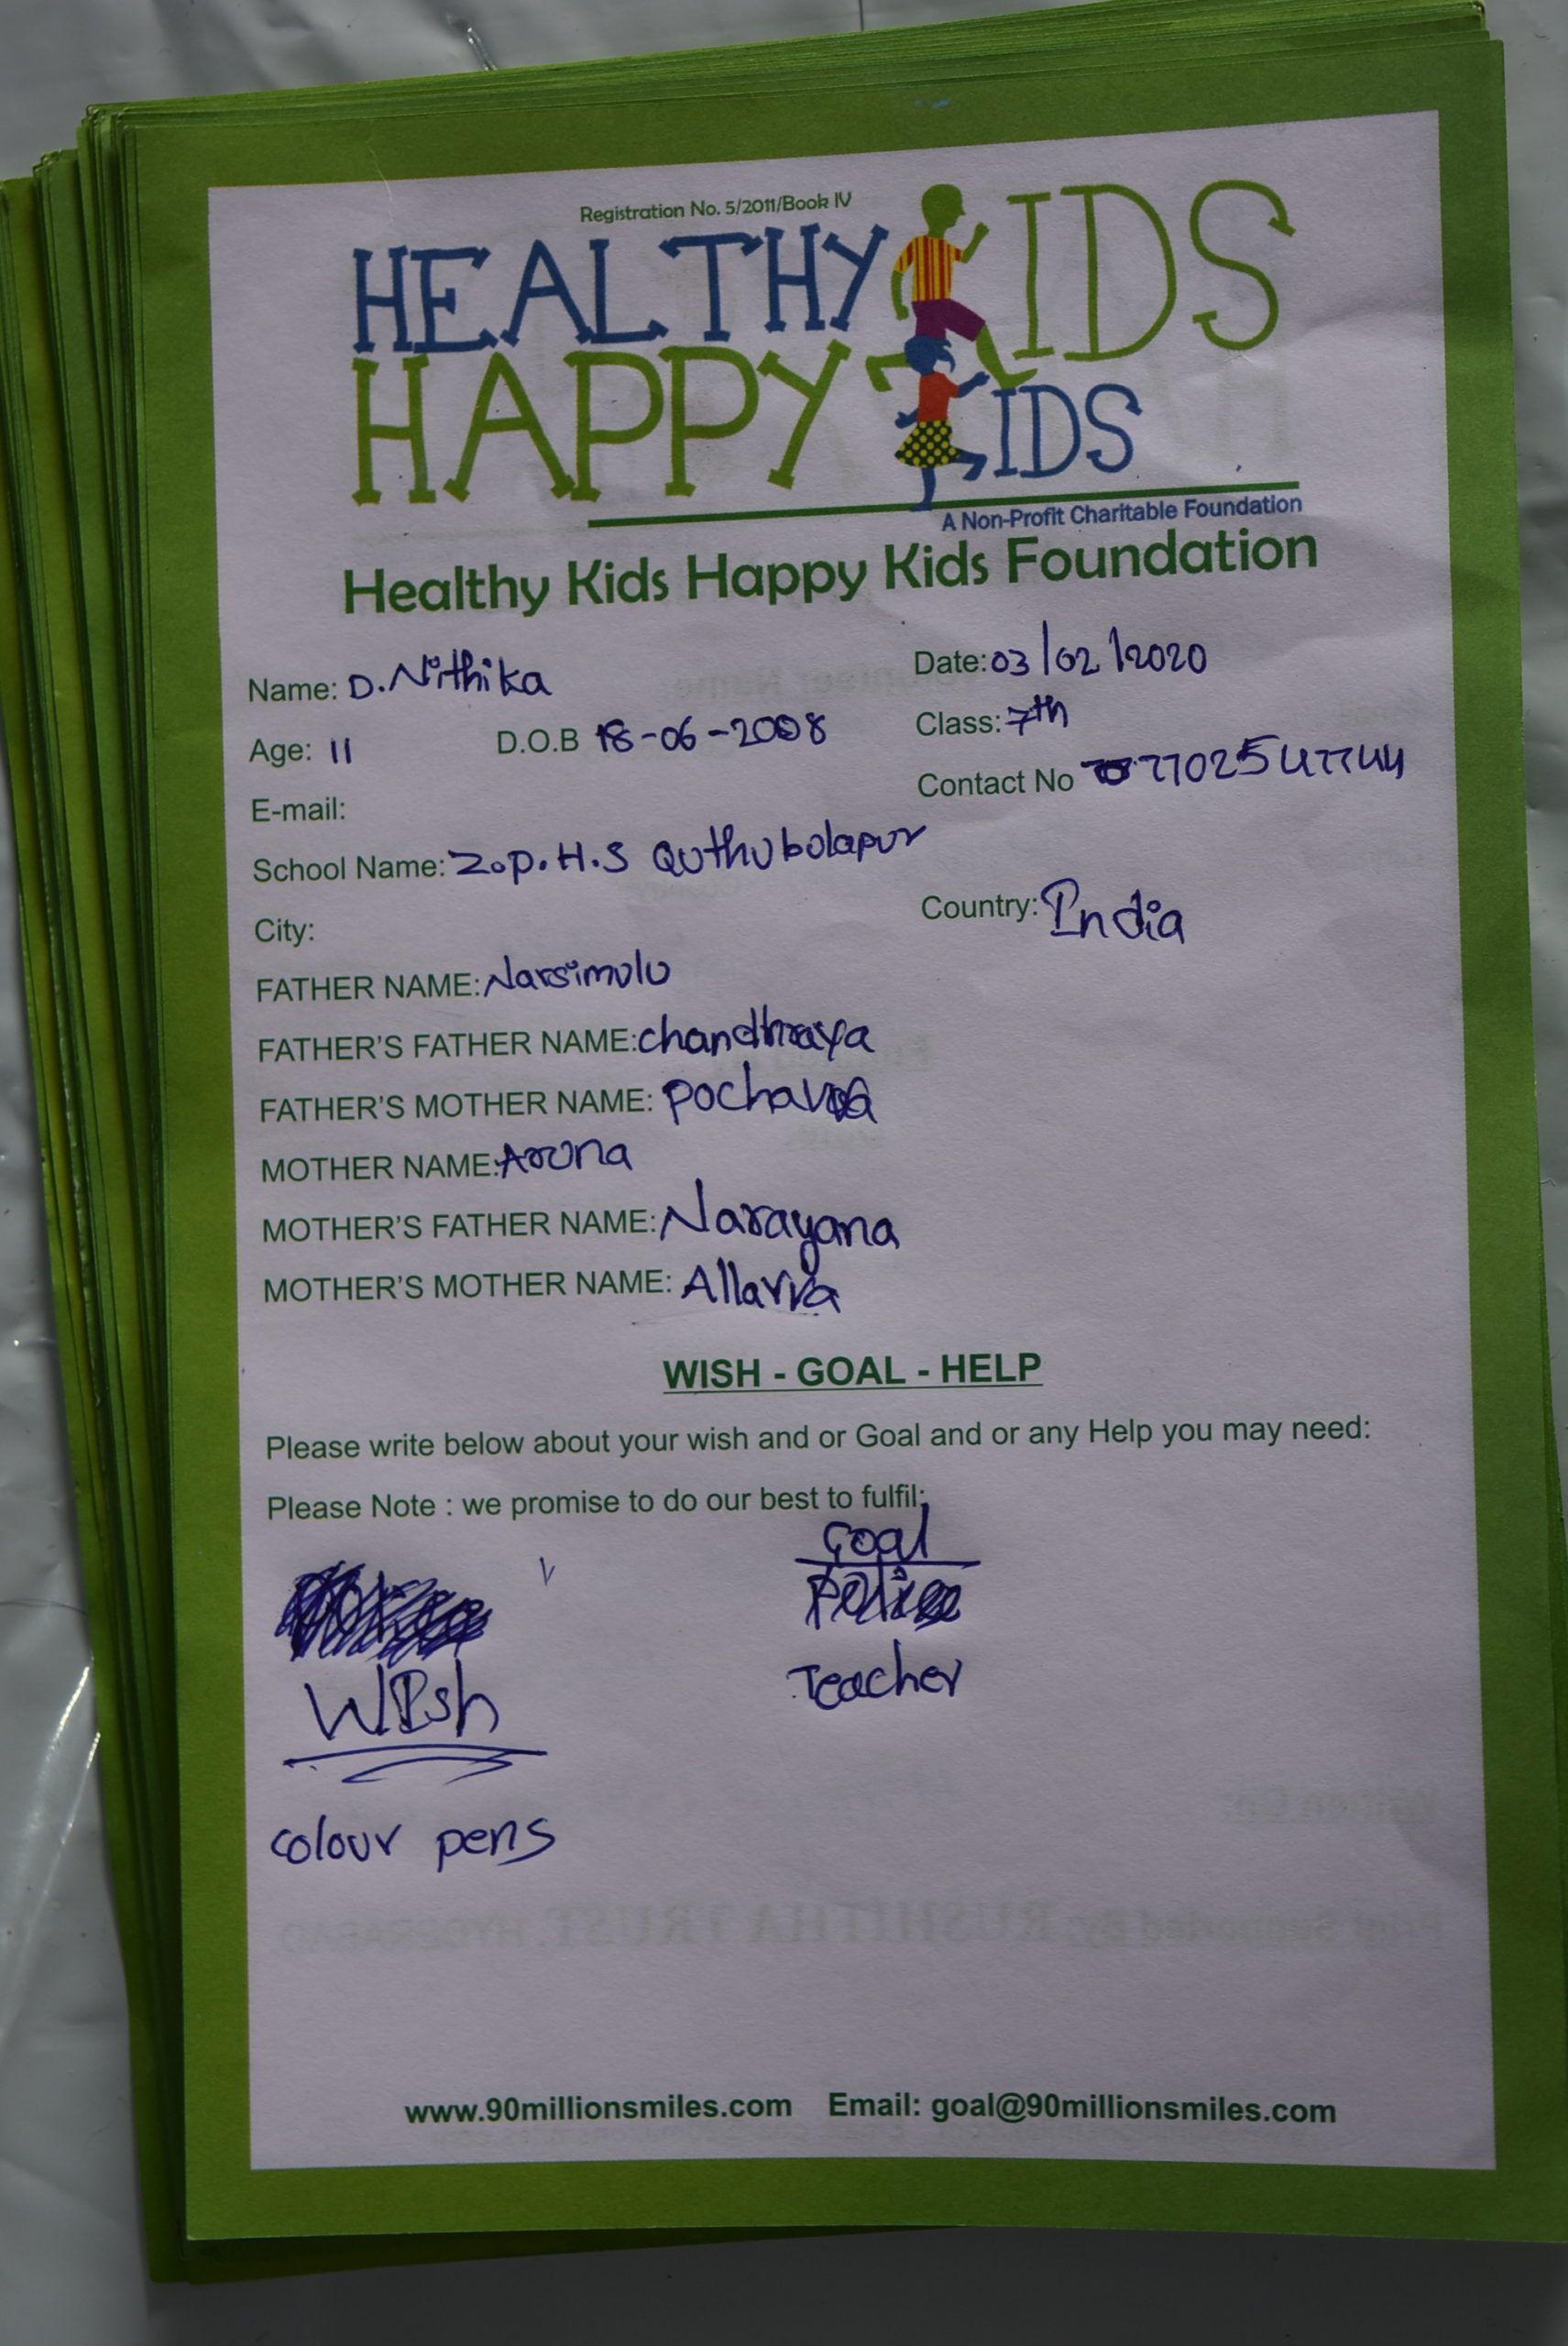 Registration No. 5/2011/Book IV
HEALTHY KIDS
HAPPY KIDS
A Non-Profit Charitable Foundation
Healthy Kids Happy Kids Foundation
Name: D. Nithika Date: 03/02/2020
Age: 11 D.O.B 18-06-2008 Class: 7th
E-mail: Contact No 7702547744
School Name: Z.P.H.S Quthubolapur
City: Country: India
FATHER NAME: Narsimulu
FATHER'S FATHER NAME:
FATHER'S MOTHER NAME:
MOTHER NAME: Aruna
MOTHER'S FATHER NAME: Narayana
MOTHER'S MOTHER NAME: Allavva
WISH - GOAL - HELP
Please write below about your wish and or Goal and or any Help you may need:
Please Note : we promise to do our best to fulfil:
Goal
Police
Teacher
WIsh
colour pens
www.90millionsmiles.com Email: goal@90millionsmiles.com